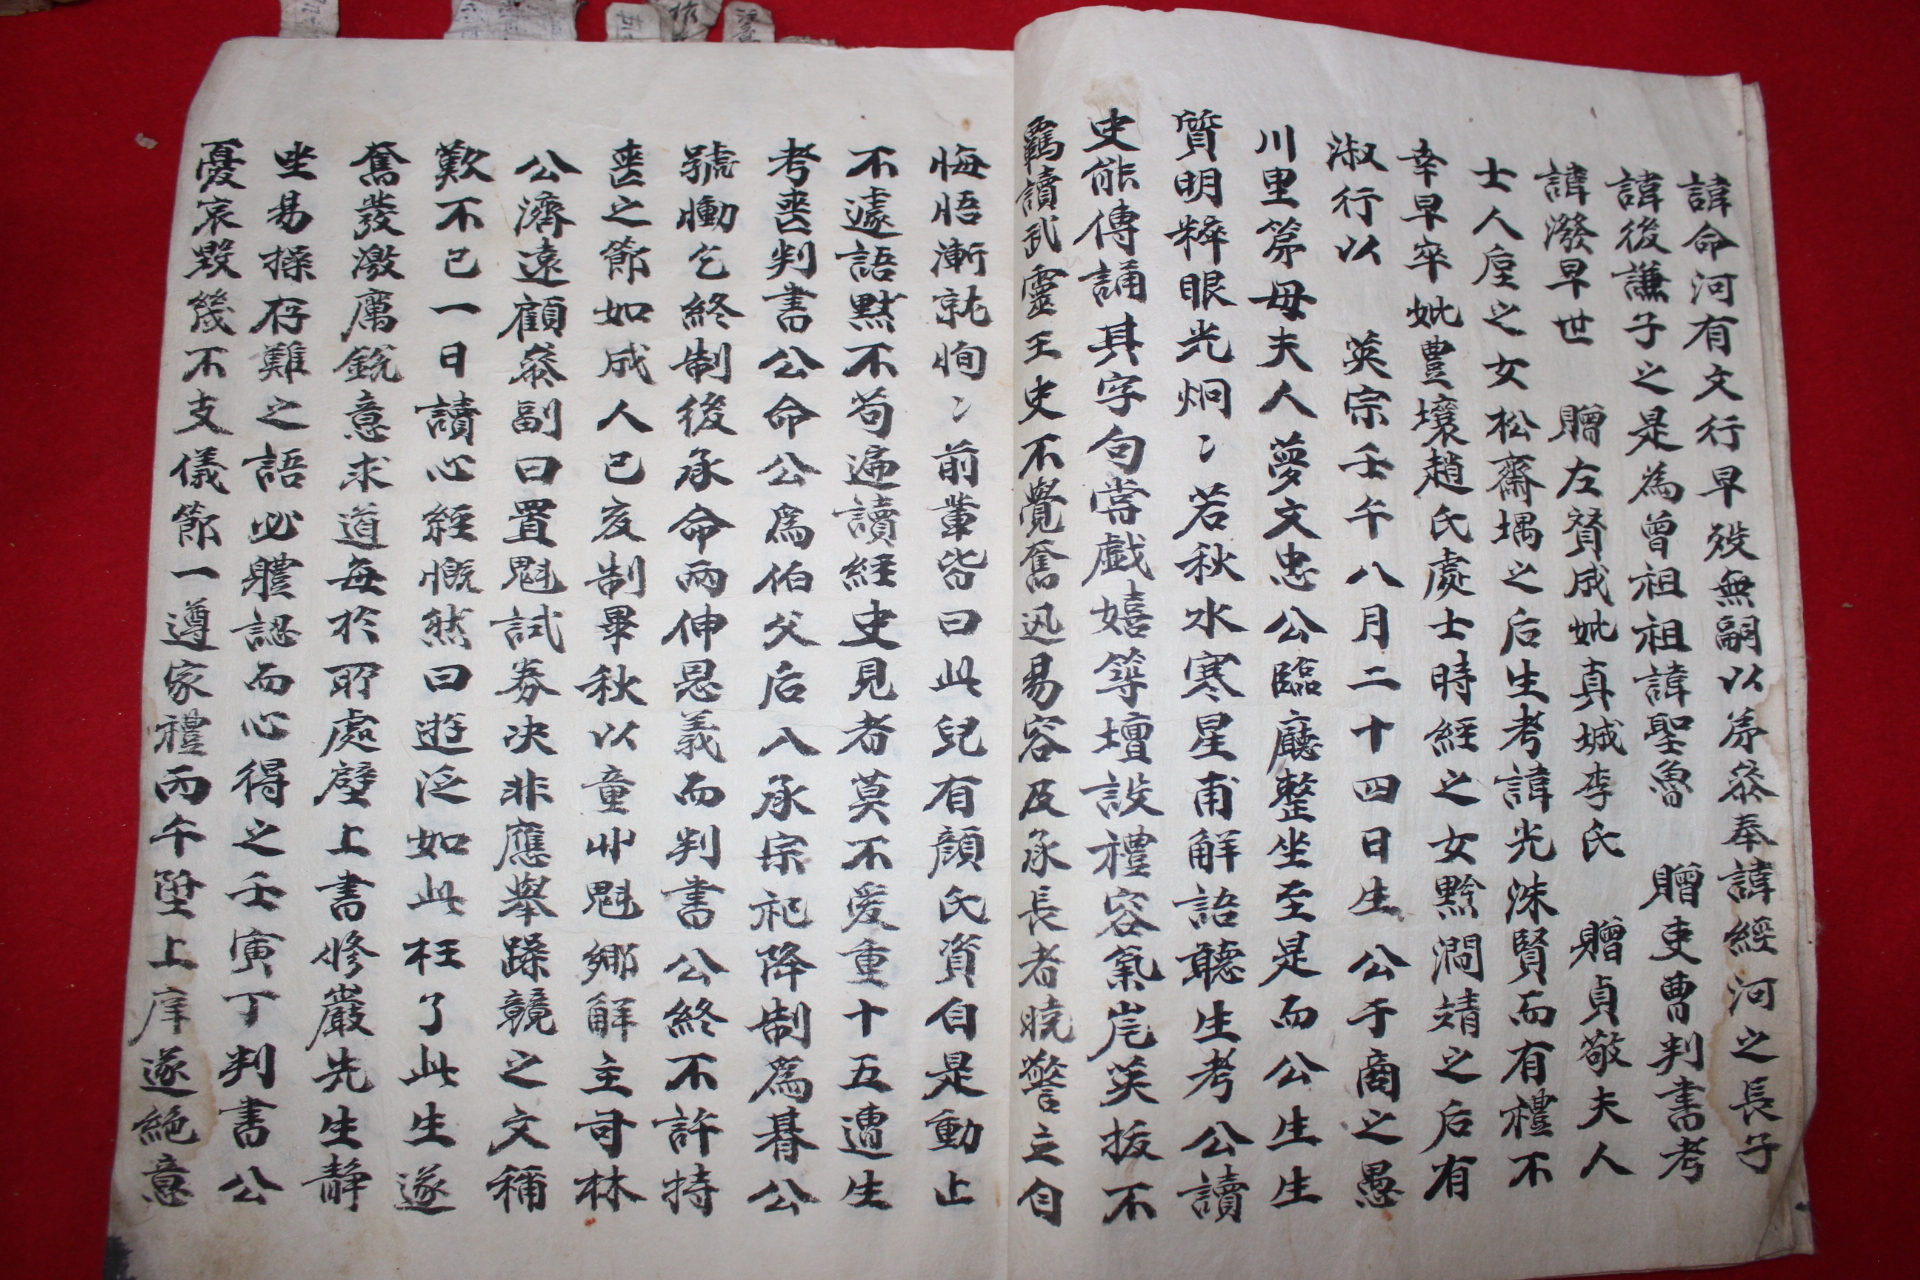 諱命河有文行早歿無嗣以弟叅奉諱經河之長子
諱後謙子之是為曾祖祖諱聖魯 贈吏曹判書考
諱潑早世 贈左賛成妣真城李氏 贈貞敬夫人
士人垕之女松齋堣之后生考諱光洙賢而有禮不
幸早卒妣豊壤趙氏處士時經之女黔澗靖之后有
淑行以 英宗壬午八月二十四日生公于商之愚
川里第母夫人夢文忠公臨廳整坐至是而公生生
質明粹眼光炯〻若秋水寒星甫解語聽生考公讀
史能傳誦其字句嘗戲嬉等壇設禮容氣岸英拔不
羈讀武靈王史不覺奮迅易容及承長者曉警立自
悔悟漸就恂〻前輩皆曰此兒有顔氏資自是動止
不遽語默不苟遍讀經史見者莫不愛重十五遭生
考喪判書公命公爲伯父后入承宗祀降制爲朞公
號慟乞終制後承命兩伸恩義而判書公終不許持
喪之節如成人己亥制畢秋以童丱魁鄉解主司林
公濟遠顧叅副曰置魁試券决非應舉躁競之文稱
歎不已一日讀心經慨然曰遊泛如此枉了此生遂
奮發激厲銳意求道每於所處壁上書修嚴先生靜
坐易操存難之語必體認而心得之壬寅丁判書公
憂哀毀幾不支儀節一遵家禮丙午陞上庠遂絶意